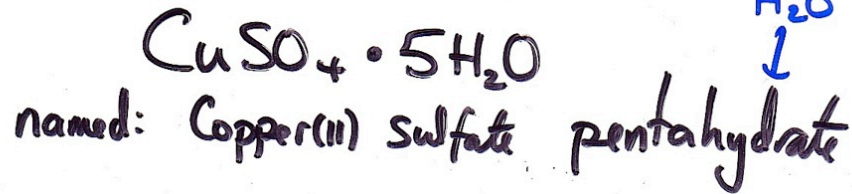 H₂O
↓
CuSO₄ • 5H₂O
named: Copper(II) sulfate pentahydrate